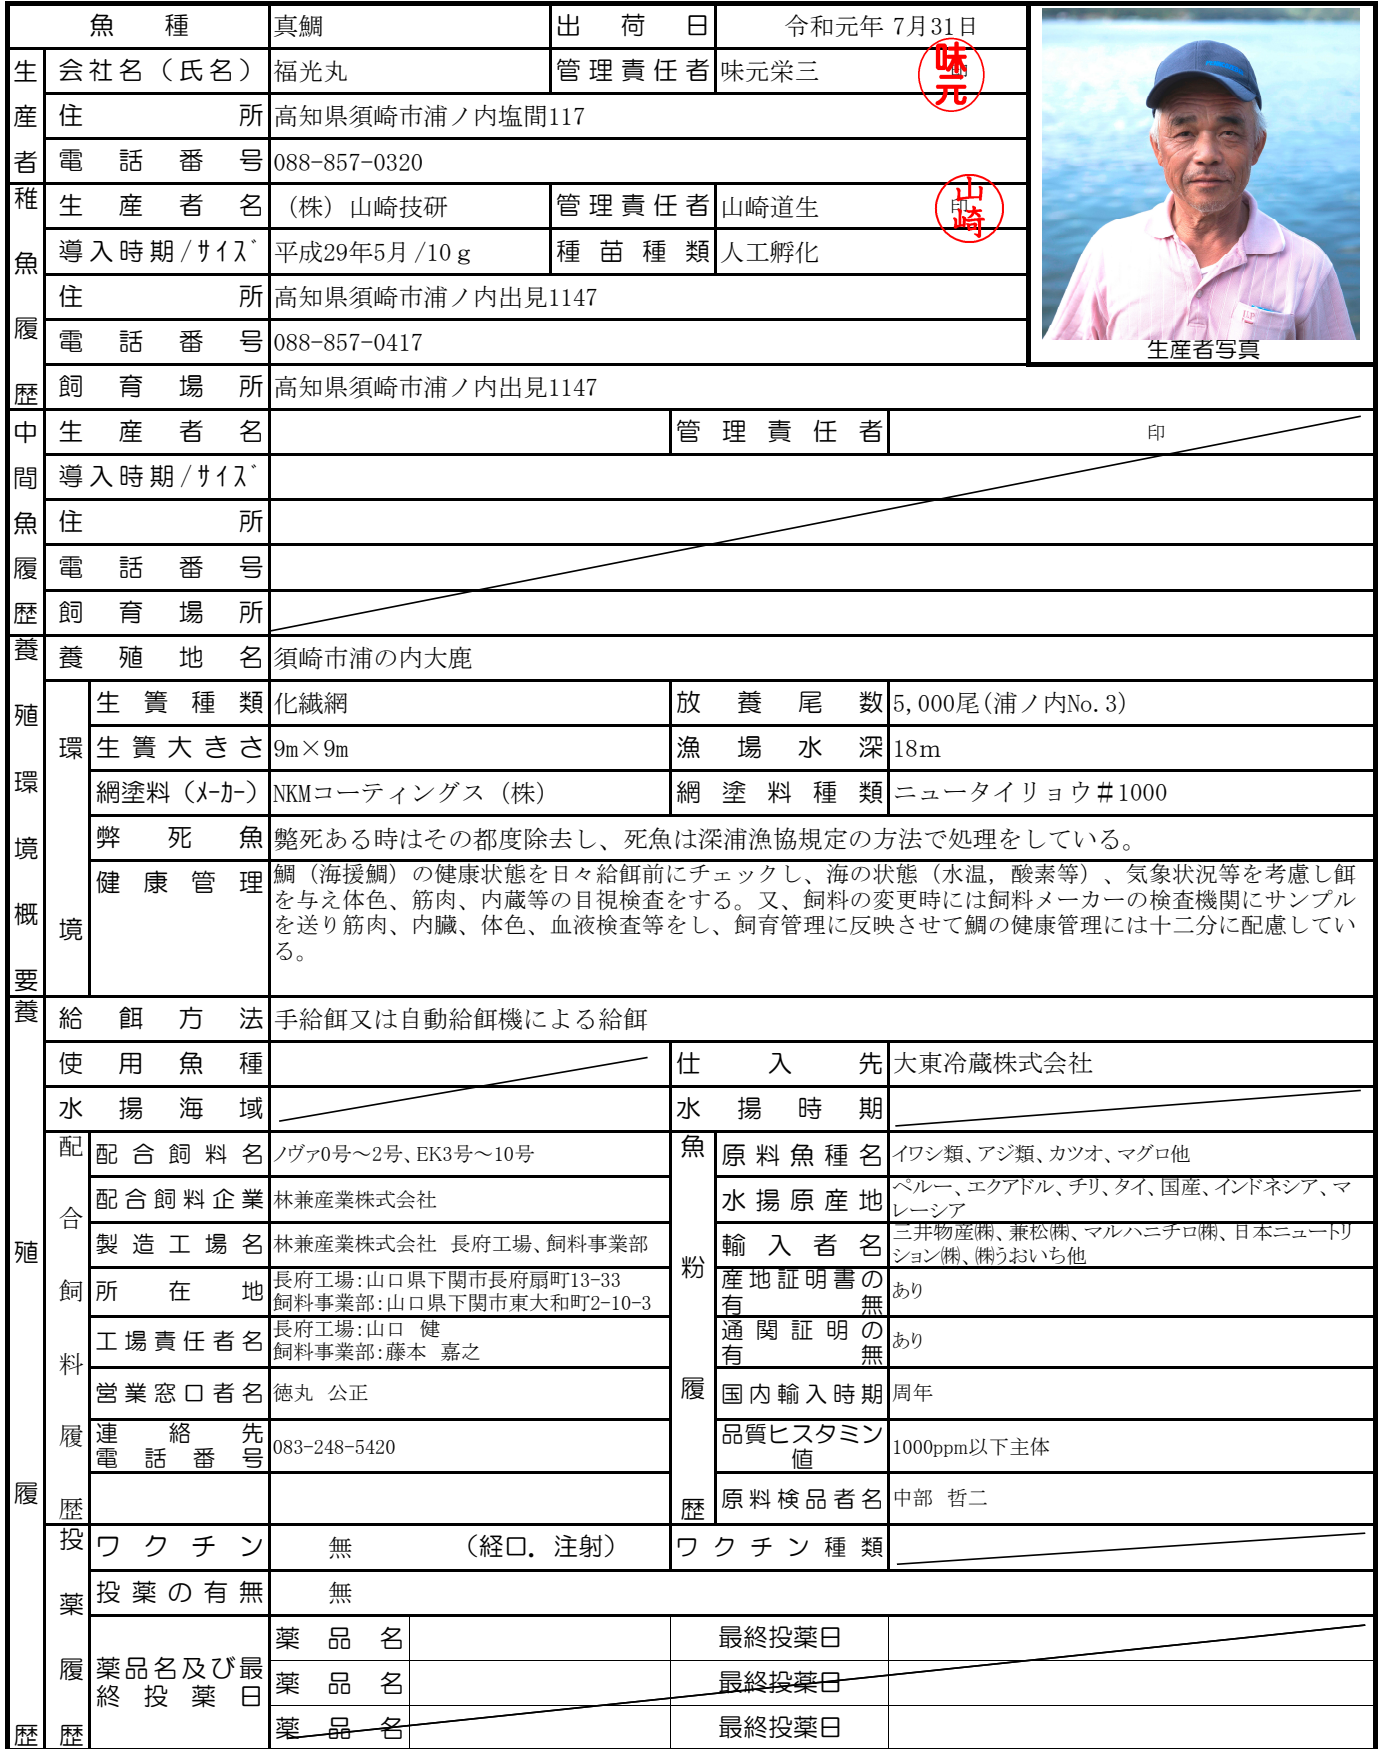 魚種 真鯛 出荷日 令和元年 7月31日
生産者
会社名（氏名） 福光丸 管理責任者 味元栄三 印 味元
住所 高知県須崎市浦ノ内塩間117
電話番号 088-857-0320
稚魚履歴
生産者名 （株）山崎技研 管理責任者 山崎道生 印 山崎
導入時期/ｻｲｽﾞ 平成29年5月/10ｇ 種苗種類 人工孵化
住所 高知県須崎市浦ノ内出見1147
電話番号 088-857-0417
JLP
生産者写真
飼育場所 高知県須崎市浦ノ内出見1147
中間魚履歴
生産者名 管理責任者 印
導入時期/ｻｲｽﾞ
住所
電話番号
飼育場所
養殖環境概要
養殖地名 須崎市浦の内大鹿
環境
生簀種類 化繊網 放養尾数 5,000尾(浦ノ内No.3)
生簀大きさ 9m×9m 漁場水深 18ｍ
網塗料（ﾒｰｶｰ） NKMコーティングス（株） 網塗料種類 ニュータイリョウ＃1000
弊死魚 斃死ある時はその都度除去し、死魚は深浦漁協規定の方法で処理をしている。
健康管理 鯛（海援鯛）の健康状態を日々給餌前にチェックし、海の状態（水温，酸素等）、気象状況等を考慮し餌
を与え体色、筋肉、内蔵等の目視検査をする。又、飼料の変更時には飼料メーカーの検査機関にサンプル
を送り筋肉、内臓、体色、血液検査等をし、飼育管理に反映させて鯛の健康管理には十二分に配慮してい
る。
養殖履歴
給餌方法 手給餌又は自動給餌機による給餌
使用魚種 仕入先 大東冷蔵株式会社
水揚海域 水揚時期
配合飼料履歴
配合飼料名 ノヴァ0号～2号、EK3号～10号
配合飼料企業 林兼産業株式会社
製造工場名 林兼産業株式会社 長府工場、飼料事業部
所在地 長府工場：山口県下関市長府扇町13-33
飼料事業部：山口県下関市東大和町2-10-3
工場責任者名 長府工場：山口 健
飼料事業部：藤本 嘉之
営業窓口者名 徳丸 公正
連絡先
電話番号 083-248-5420
魚粉履歴
原料魚種名 イワシ類、アジ類、カツオ、マグロ他
水揚原産地 ペルー、エクアドル、チリ、タイ、国産、インドネシア、マ
レーシア
輸入者名 三井物産㈱、兼松㈱、マルハニチロ㈱、日本ニュートリ
ション㈱、㈱うおいち他
産地証明書の
有無 あり
通関証明の
有無 あり
国内輸入時期 周年
品質ヒスタミン
値 1000ppm以下主体
原料検品者名 中部 哲二
投薬履歴
ワクチン 無 （経口．注射） ワクチン種類
投薬の有無 無
薬品名及び最
終投薬日
薬品名 最終投薬日
薬品名 最終投薬日
薬品名 最終投薬日